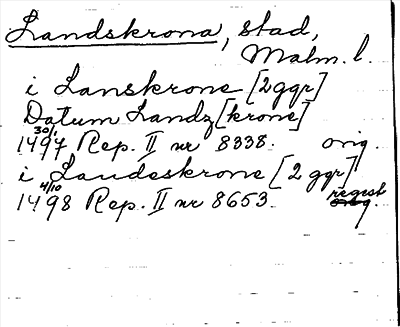 Landskrona, stad,
Malm. l.
i Lanskrone [2 ggr]
Datum Landz[krone]
30/1
1497 Rep. II nr 8338. orig.
i Landeskrone [2 ggr]
4/10 regest
1498 Rep. II nr 8653. orig.